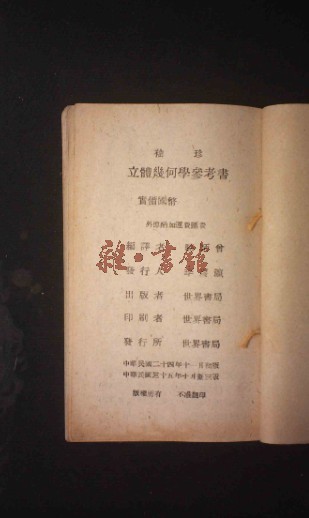 袖珍
立體幾何學參考書
實價國幣
外埠酌加運費匯費
編譯者
發行人
出版者 世界書局
印刷者 世界書局
發行所 世界書局
中華民國二十四年十一月初版
中華民國三十五年十月
版權所有 不准翻印
雜·書館